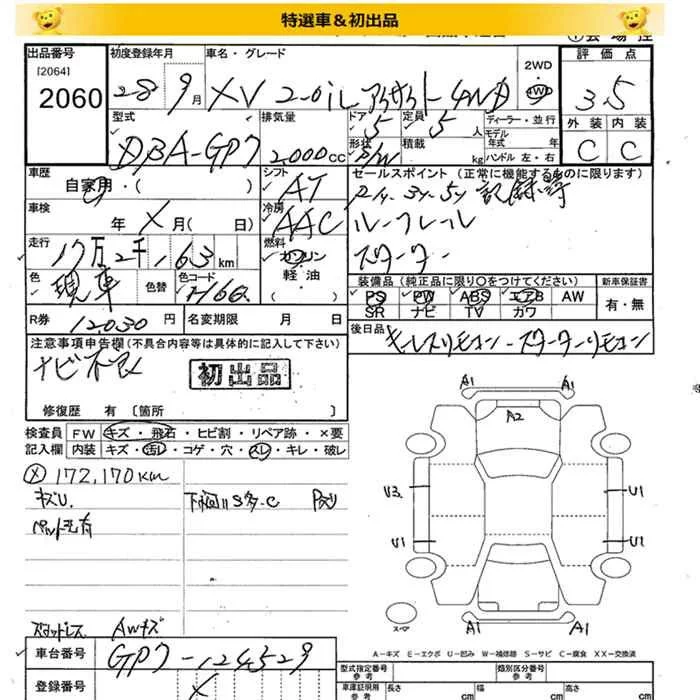 特選車＆初出品
出品番号
[2064]
2060
初度登録年月
28 9月
車名・グレード
XV 2-0iL アイサイト 4WD
2WD
4WD
評価点
3.5
外装 内装
C C
型式
DBA-GP7
排気量
2000cc
ドア 5
定員 5人
形状 S/W
積載 kg
ディーラー・並行
モデル年式 年
ハンドル 左・右
車歴
自家用・( )
シフト
AT
セールスポイント (正常に機能するものに限ります)
ルーフレール
スターター
車検
年 X月( 日)
冷房
AAC
走行
17万2千163km
燃料
ガソリン
軽油
色
現車
色替
色コード
H6Q
装備品 (純正品に限り○をつけてください)
PS PW ABS エアB AW
SR ナビ TV カワ
新車保証書
有・無
R券 12030円
名変期限 月 日
後日品
キーレスリモコン-スターターリモコン
注意事項申告欄(不具合内容等は具体的に記入して下さい)
ナビ不良
初出品
修復歴 有〔箇所 〕
検査員記入欄
FW キズ・飛石・ヒビ割・リペア跡・×要
内装 キズ・汚レ・コゲ・穴・スレ・キレ・破レ
Ⓧ172,170km
キズU.
ペット毛有
下回リS多-C
スタッドレス AWキズ
A1 A1
A2
U3 U1
U1 U1
A1 A1
スペア
A-キズ E-エクボ U-凹み W-補修跡 S-サビ C-腐食 XX-交換済
車台番号
GP7-124529
登録番号
X
型式指定番号
参考
類別区分番号
参考
車庫証明用
参考
長さ cm
幅 cm
高さ cm